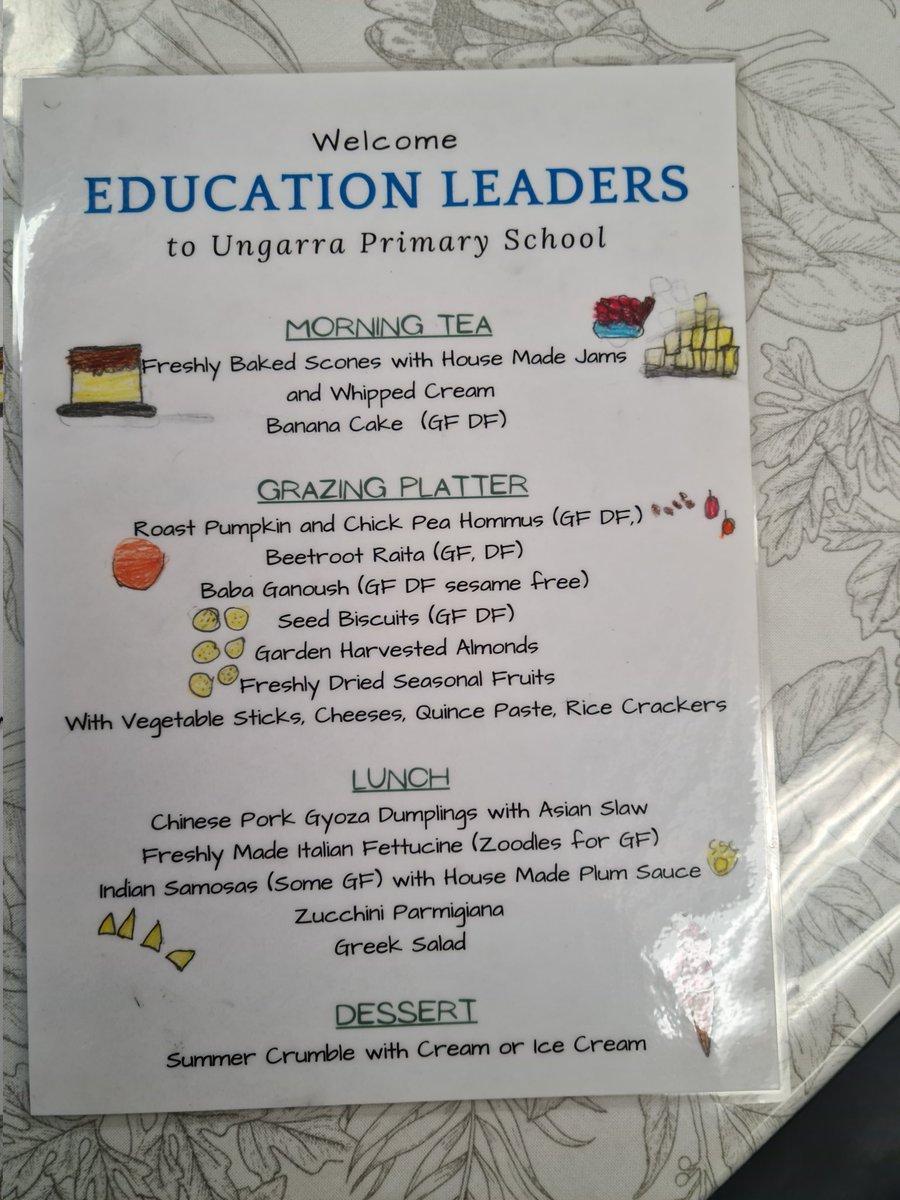 Welcome
EDUCATION LEADERS
to Ungarra Primary School
MORNING TEA
Freshly Baked Scones with House Made Jams
and Whipped Cream
Banana Cake (GF DF)
GRAZING PLATTER
Roast Pumpkin and Chick Pea Hommus (GF DF,)
Beetroot Raita (GF, DF)
Baba Ganoush (GF DF sesame free)
Seed Biscuits (GF DF)
Garden Harvested Almonds
Freshly Dried Seasonal Fruits
With Vegetable Sticks, Cheeses, Quince Paste, Rice Crackers
LUNCH
Chinese Pork Gyoza Dumplings with Asian Slaw
Freshly Made Italian Fettucine (Zoodles for GF)
Indian Samosas (Some GF) with House Made Plum Sauce
Zucchini Parmigiana
Greek Salad
DESSERT
Summer Crumble with Cream or Ice Cream